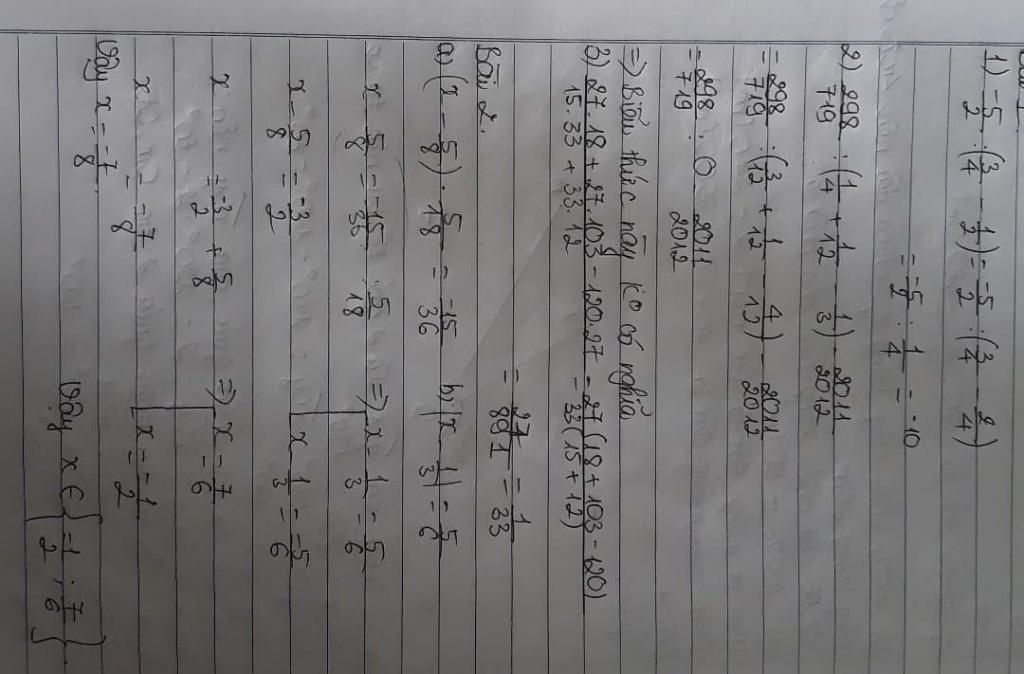 1) -5/2 : (3/4 - 1/2) = -5/2 : (3/4 - 2/4)
= -5/2 : 1/4 = -10
2) 298/719 : (1/4 + 1/12 - 1/3) - 2011/2012
= 298/719 : (3/12 + 1/12 - 4/12) - 2011/2012
= 298/719 : 0 - 2011/2012
=> Biểu thức này ko có nghĩa
3) 27.18 + 27.103 - 120.27 / 15.33 + 33.12 = 27(18 + 103 - 120) / 33(15 + 12)
= 27/891 = 1/33
Bài 2.
a) (x - 5/8) . 5/18 = -15/36
x - 5/8 = -15/36 : 5/18
x - 5/8 = -3/2
x = -3/2 + 5/8
x = -7/8
Vậy x = -7/8.
b) |x - 1/3| = 5/6
=> x - 1/3 = 5/6
x - 1/3 = -5/6
=> x = 7/6
x = -1/2
Vậy x ∈ {-1/2 ; 7/6}